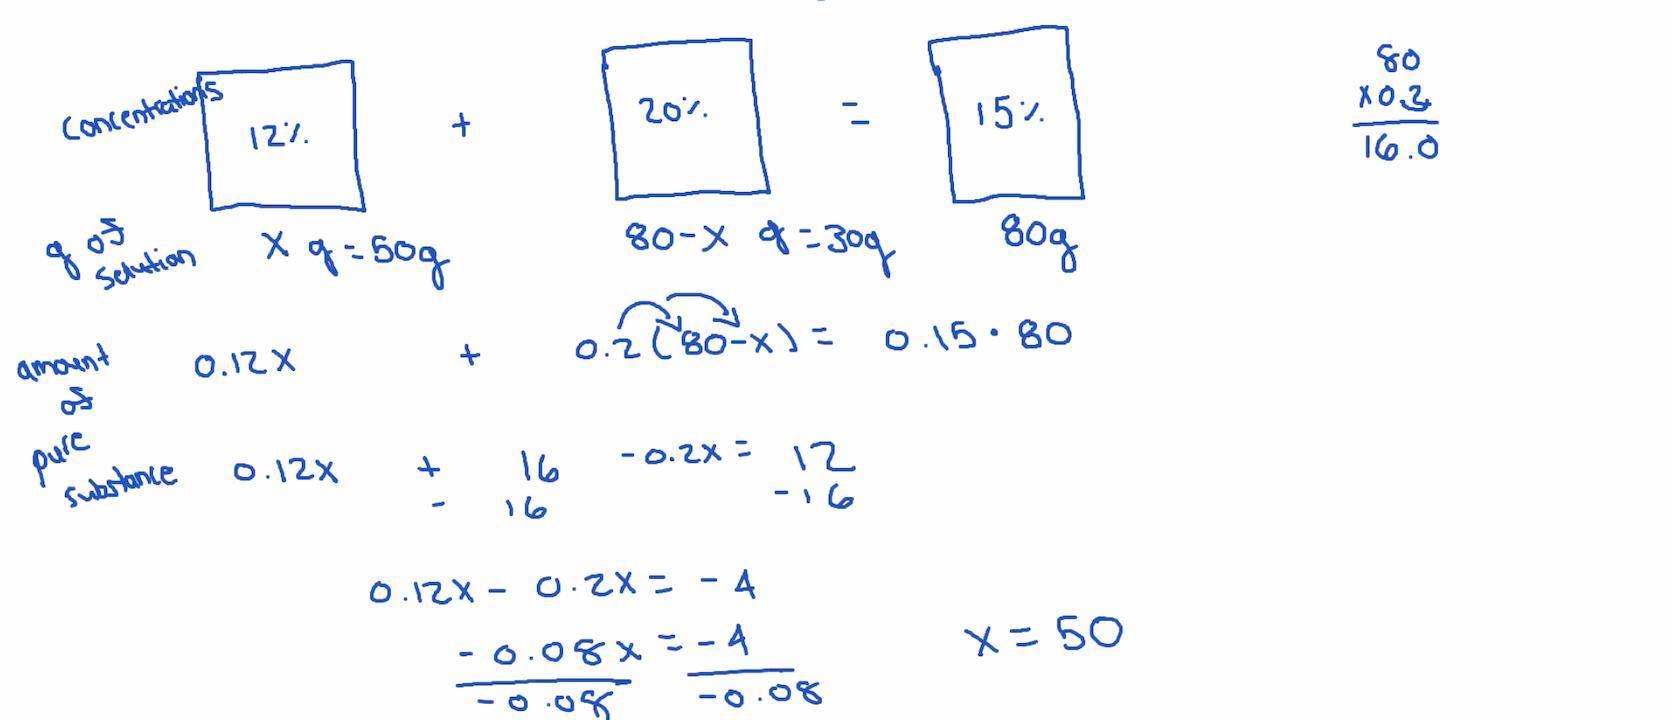 Concentrations 12% + 20% = 15%
g of solution x g = 50g 80-x g = 30g 80g
amount of pure substance
0.12x + 0.2(80-x) = 0.15 · 80
0.12x + 16 -0.2x = 12
- 16 -16
0.12x - 0.2x = -4
-0.08x = -4
-0.08 -0.08
x = 50
80
x0.2
16.0